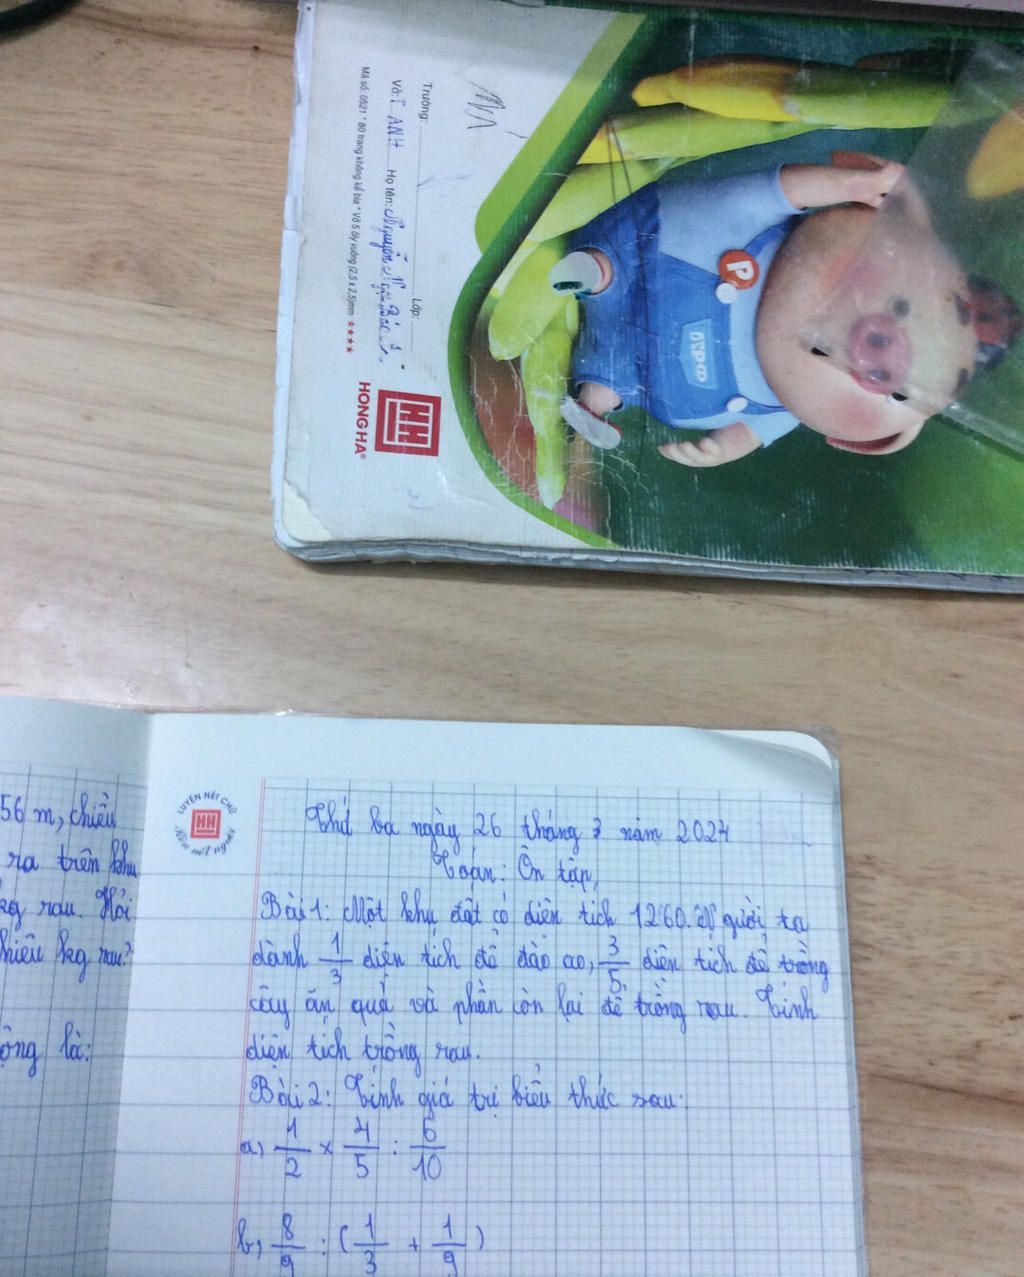 Trường:
Lớp:
Vở: T ANH Họ tên: Nguyễn
Mã số: 0521 * 80 trang không kể bìa * Vở 5 ôly vuông (2,5 x 2,5)mm ★★★★
HH
HONG HA®
P
56 m, chiều
ra trên khu
kg rau. Hỏi
nhiêu kg rau?
ộng là:
LUYỆN NÉT CHỮ
HH
Rèn nết người
Thứ ba ngày 26 tháng 3 năm 2024
Toán: Ôn tập
Bài 1: Một khu đất có diện tích 1260. Người ta
dành 1/3 diện tích để đào ao, 3/5 diện tích để trồng
cây ăn quả và phần còn lại để trồng rau. Tính
diện tích trồng rau.
Bài 2: Tính giá trị biểu thức sau:
a, 1/2 × 4/5 : 6/10
b, 8/9 : ( 1/3 + 1/9 )